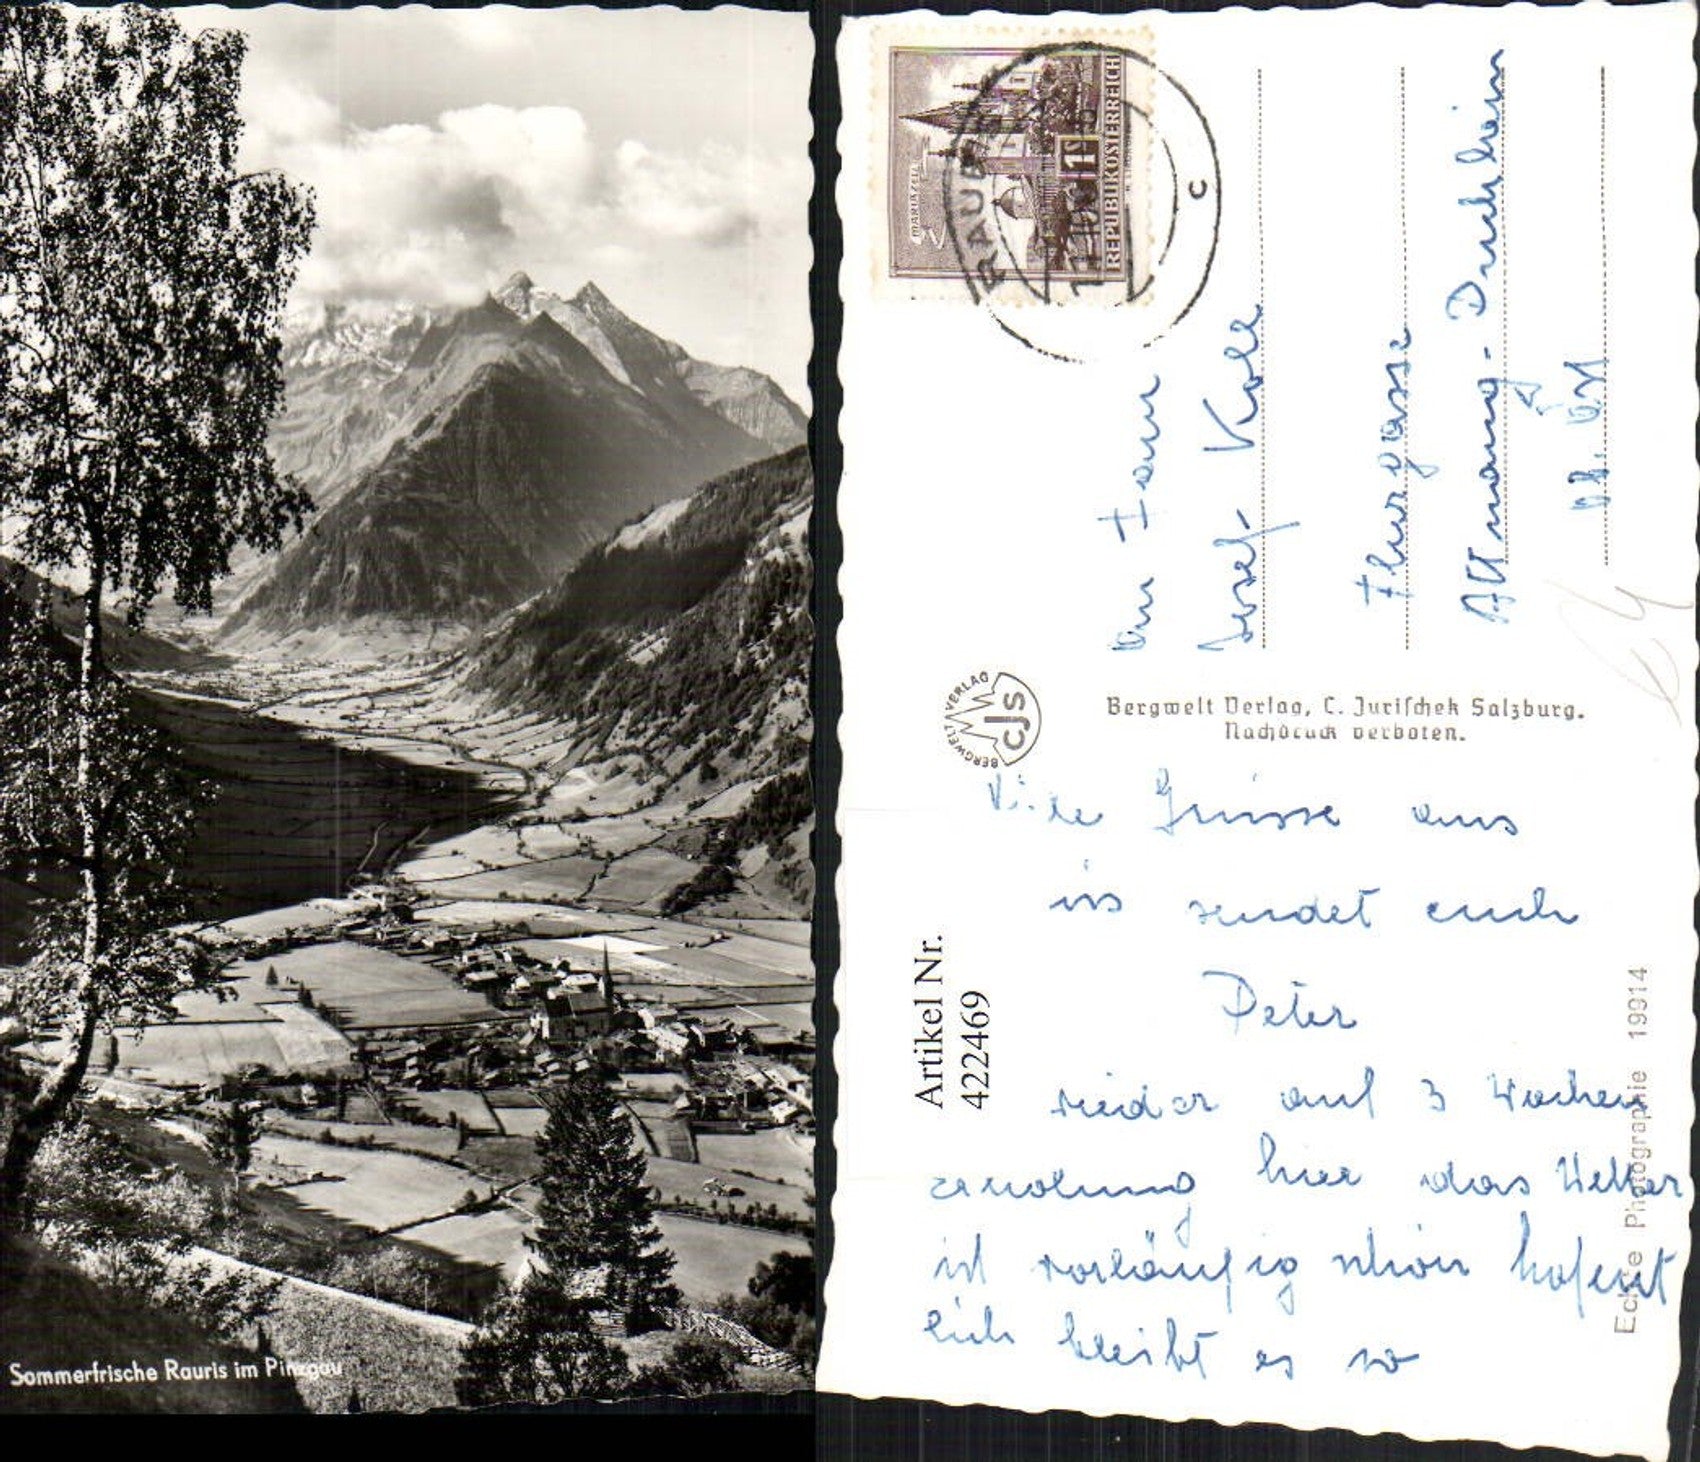 Sommerfrische Rauris im Pinzgau
MARIAZELL
1
REPUBLIK ÖSTERREICH
RAURIS
C
An Fam
Josef Kolb
Flurgasse
Attnang-Puchheim
Ob. Öst
Bergwelt Verlag, C. Jurischek Salzburg.
Nachdruck verboten.
BERGWELTVERLAG
CJS
BERGWELT
Viele Grüsse aus
sendet euch
Peter
wieder auf 3 Wochen
hier das Wetter
ist vorläufig schön hofent
lich bleibt es so
Artikel Nr.
422469
Echte Photographie 19914